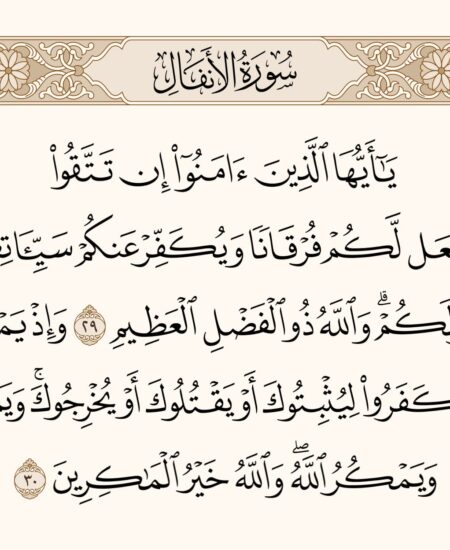 سُورَةُ الأَنفَالِ
يَـٰٓأَيُّهَا ٱلَّذِينَ ءَامَنُوٓا۟ إِن تَتَّقُوا۟
عَل لَّكُمْ فُرْقَانًا وَيُكَفِّرْ عَنكُمْ سَيِّـَٔاتِ
لَكُمْ ۗ وَٱللَّهُ ذُو ٱلْفَضْلِ ٱلْعَظِيمِ ٢٩ وَإِذْ يَمْ
كَفَرُوا۟ لِيُثْبِتُوكَ أَوْ يَقْتُلُوكَ أَوْ يُخْرِجُوكَ ۚ وَيَمْ
وَيَمْكُرُ ٱللَّهُ ۖ وَٱللَّهُ خَيْرُ ٱلْمَـٰكِرِينَ ٣٠